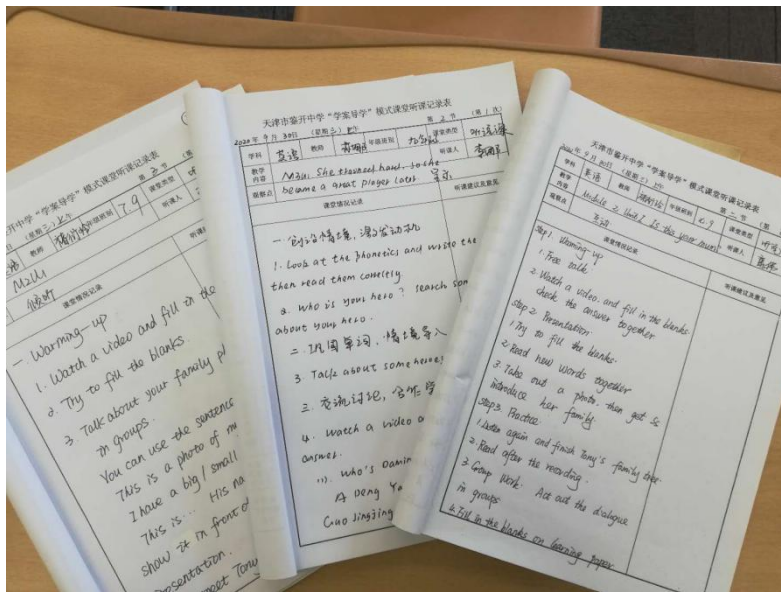 开中学“学案导学”模式课堂听课记录表
年级班级 7.9
课堂类型
听课人
教师
M2U1
倾听
课堂情况记录
一 Warming-up
1. Watch a video and fill in the
2. Try to fill the blanks.
3 Talk about your family
in groups.
You can use the sentence
This is a photo of m
I have a big / small
This is... His na
show it in front of
Presentation.
meet Tony
天津市蓟开中学“学案导学”模式课堂听课记录表
2020年 9月 30日 (星期三) 上午 第 2 节 (第 1 次)
学科 英语 教师 年级班别 课堂类型 听说课
教学内容 M3U1 She trained hard, so she
听课人
became a great player later
观察点
课堂情况记录 听课建议及意见
一. 创设情境,激发动机
1. Look at the phonetics and write the
then read them correctly
2. Who is your hero? search som
about your hero.
二. 巩固单词,情境导入
3. Talk about some heroes
三. 交流讨论,合作学
4. Watch a video a
answer.
(1). Who's Damin
A Deng Ya
Guo Jingjing
天津市蓟开中学“学案导学”模式课堂听课记录表
年 9月 30日 (星期三) 上午 第 二 节
学科 英语 教师 年级班别 7.9 课堂类型
教学内容 Module 2 Unit 1 Is this your mum?
听课人
观察点 互动
课堂情况记录 听课建议及意见
Step 1. Warming-up
1. Free talk
2. Watch a video, and fill in the blanks.
check the answer together
Step 2 Presentation.
1. Try to fill the blanks.
2. Read new words together
3. Take out a photo, then got Ss
introduce her family.
Step 3. Practice
1. Listen again and finish Tony's family tree.
2. Read after the recording.
3. Group Work. Act out the dialogue
in groups
4. Fill in the blanks on learning paper